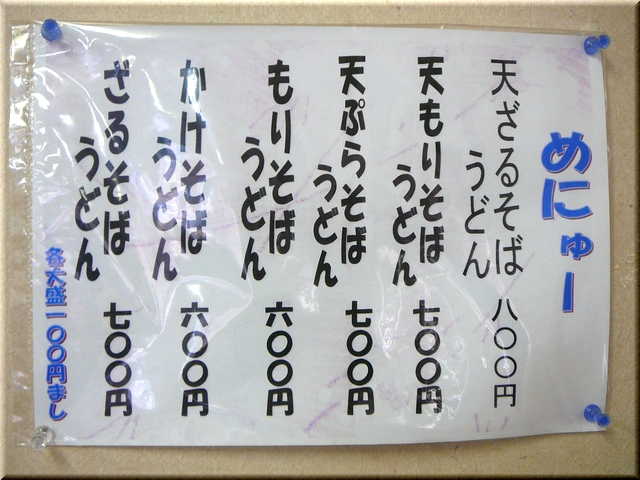 めにゅー
天ざるそば
うどん
八〇〇円
天もりそば
うどん
七〇〇円
天ぷらそば
うどん
七〇〇円
もりそば
うどん
六〇〇円
かけそば
うどん
六〇〇円
ざるそば
うどん
七〇〇円
各大盛一〇〇円まし